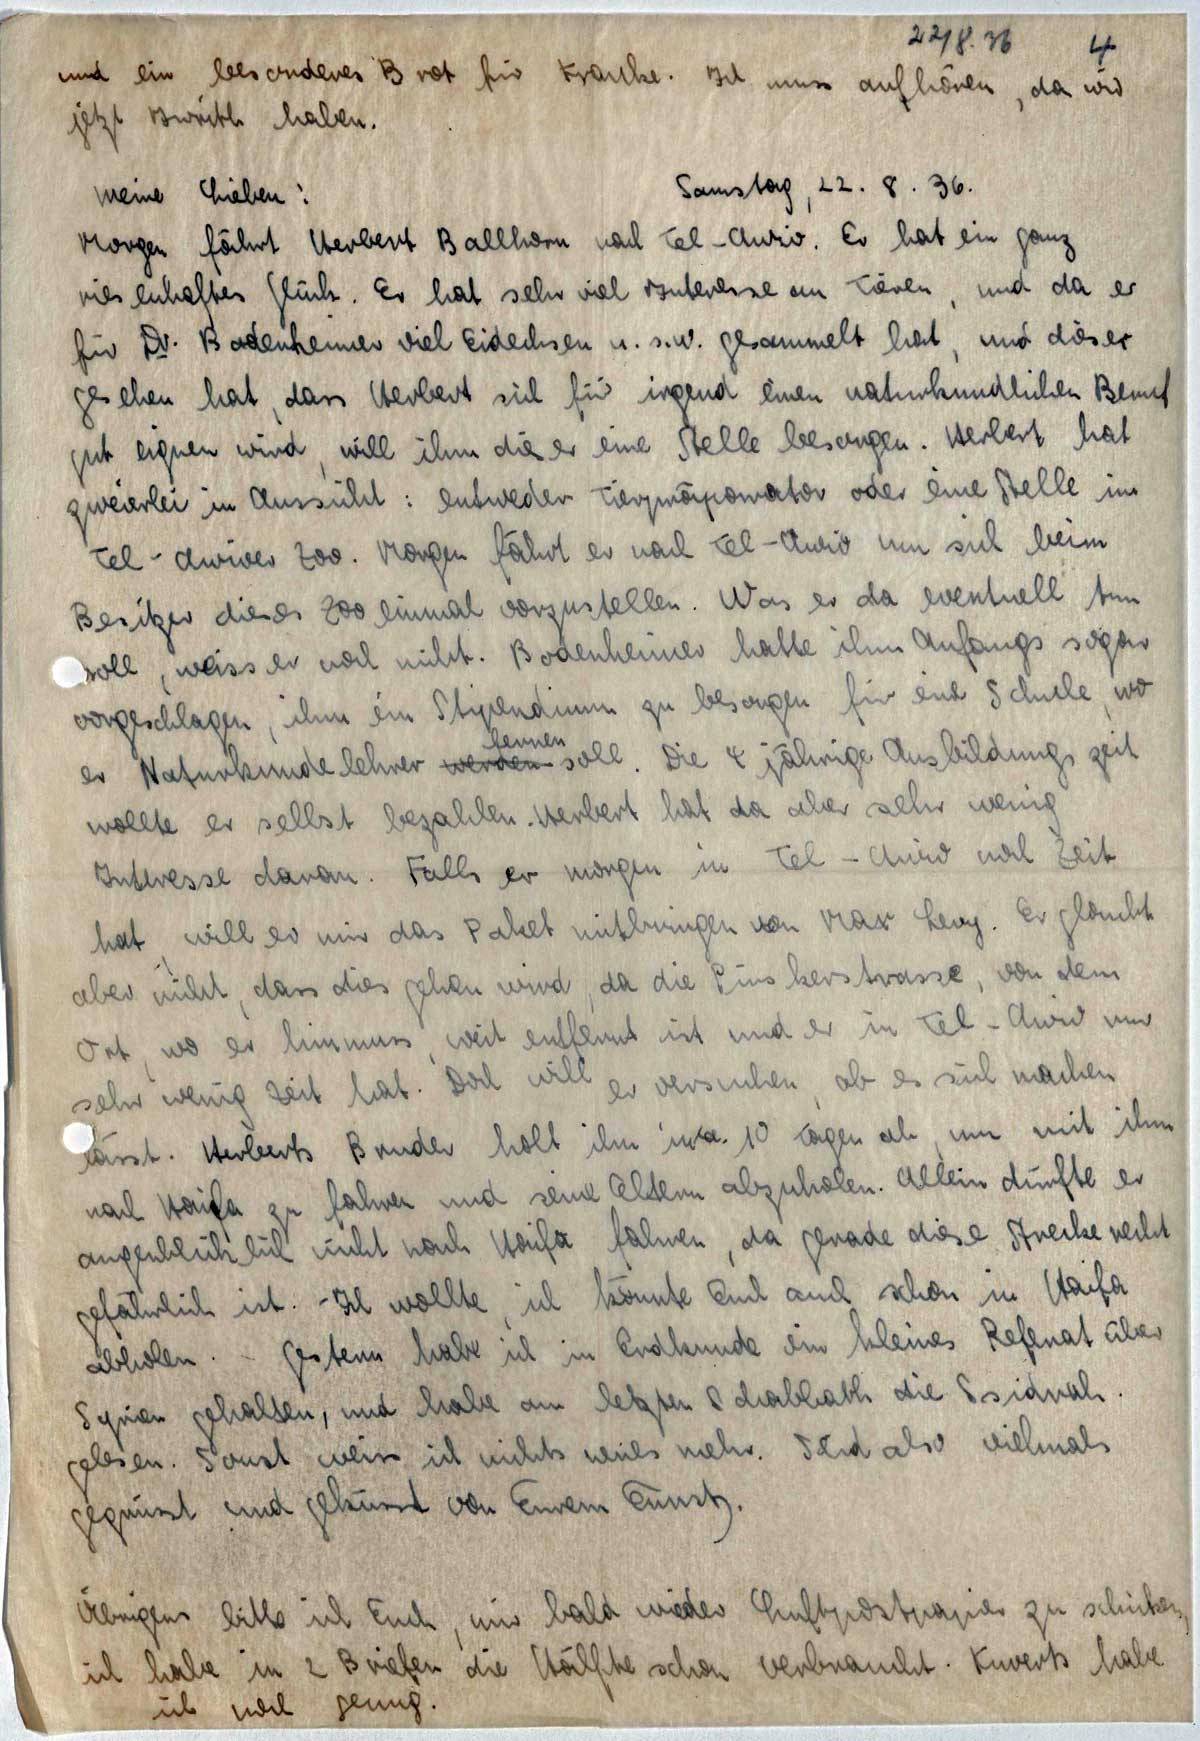 22/8.36 4
und ein besonderes Brot für Kranke. Ich muss aufhören, da wir
jetzt Iwrith haben.
Meine Lieben: Samstag, 22. 8. 36.
Morgen fährt Herbert Ballhorn nach Tel-Awiw. Er hat ein ganz
riesenhaftes Glück. Er hat sehr viel Interesse an Tieren, und da er
für Dr. Bodenheimer viel Eidechsen u.s.w. gesammelt hat, und dieser
gesehen hat, dass Herbert sich für irgend einen naturkundlichen Beruf
gut eignen wird, will ihm dieser eine Stelle besorgen. Herbert hat
zweierlei in Aussicht: entweder Tierpräparator oder eine Stelle im
Tel-Awiwer Zoo. Morgen fährt er nach Tel-Awiw um sich beim
Besitzer dieses Zoo einmal vorzustellen. Was er da eventuell tun
soll, weiss er noch nicht. Bodenheimer hatte ihm Anfangs sogar
vorgeschlagen, ihm ein Stipendium zu besorgen für eine Schule, wo
er Naturkundelehrer werden lernen soll. Die 4 jährige Ausbildungszeit
wollte er selbst bezahlen. Herbert hat da aber sehr wenig
Interesse daran. Falls er morgen in Tel-Awiw noch Zeit
hat, will er mir das Paket mitbringen von Max Levy. Er glaubt
aber nicht, dass dies gehen wird, da die Pinskerstrasse, von dem
Ort, wo er hinmuss, weit entfernt ist und er in Tel-Awiw nur
sehr wenig Zeit hat. Doch will er versuchen, ob es sich machen
lässt. Herberts Bruder holt ihn in ca. 10 Tagen ab, um mit ihm
nach Haifa zu fahren und seine Eltern abzuholen. Allein dürfte er
augenblicklich nicht nach Haifa fahren, da gerade diese Strecke recht
gefährlich ist. - Ich wollte, ich könnte Euch auch schon in Haifa
abholen. - Gestern habe ich in Erdkunde ein kleines Referat über
Syrien gehalten, und habe am letzten Schabbath die Ssidrah
gelesen. Sonst weiss ich nichts neues mehr. Seid also vielmals
gegrüsst und geküsst von Eurem Ernst.
Übrigens bitte ich Euch, mir bald wieder Luftpostpapier zu schicken,
ich habe in 2 Briefen die Hälfte schon verbraucht. Kuverts habe
ich noch genug.